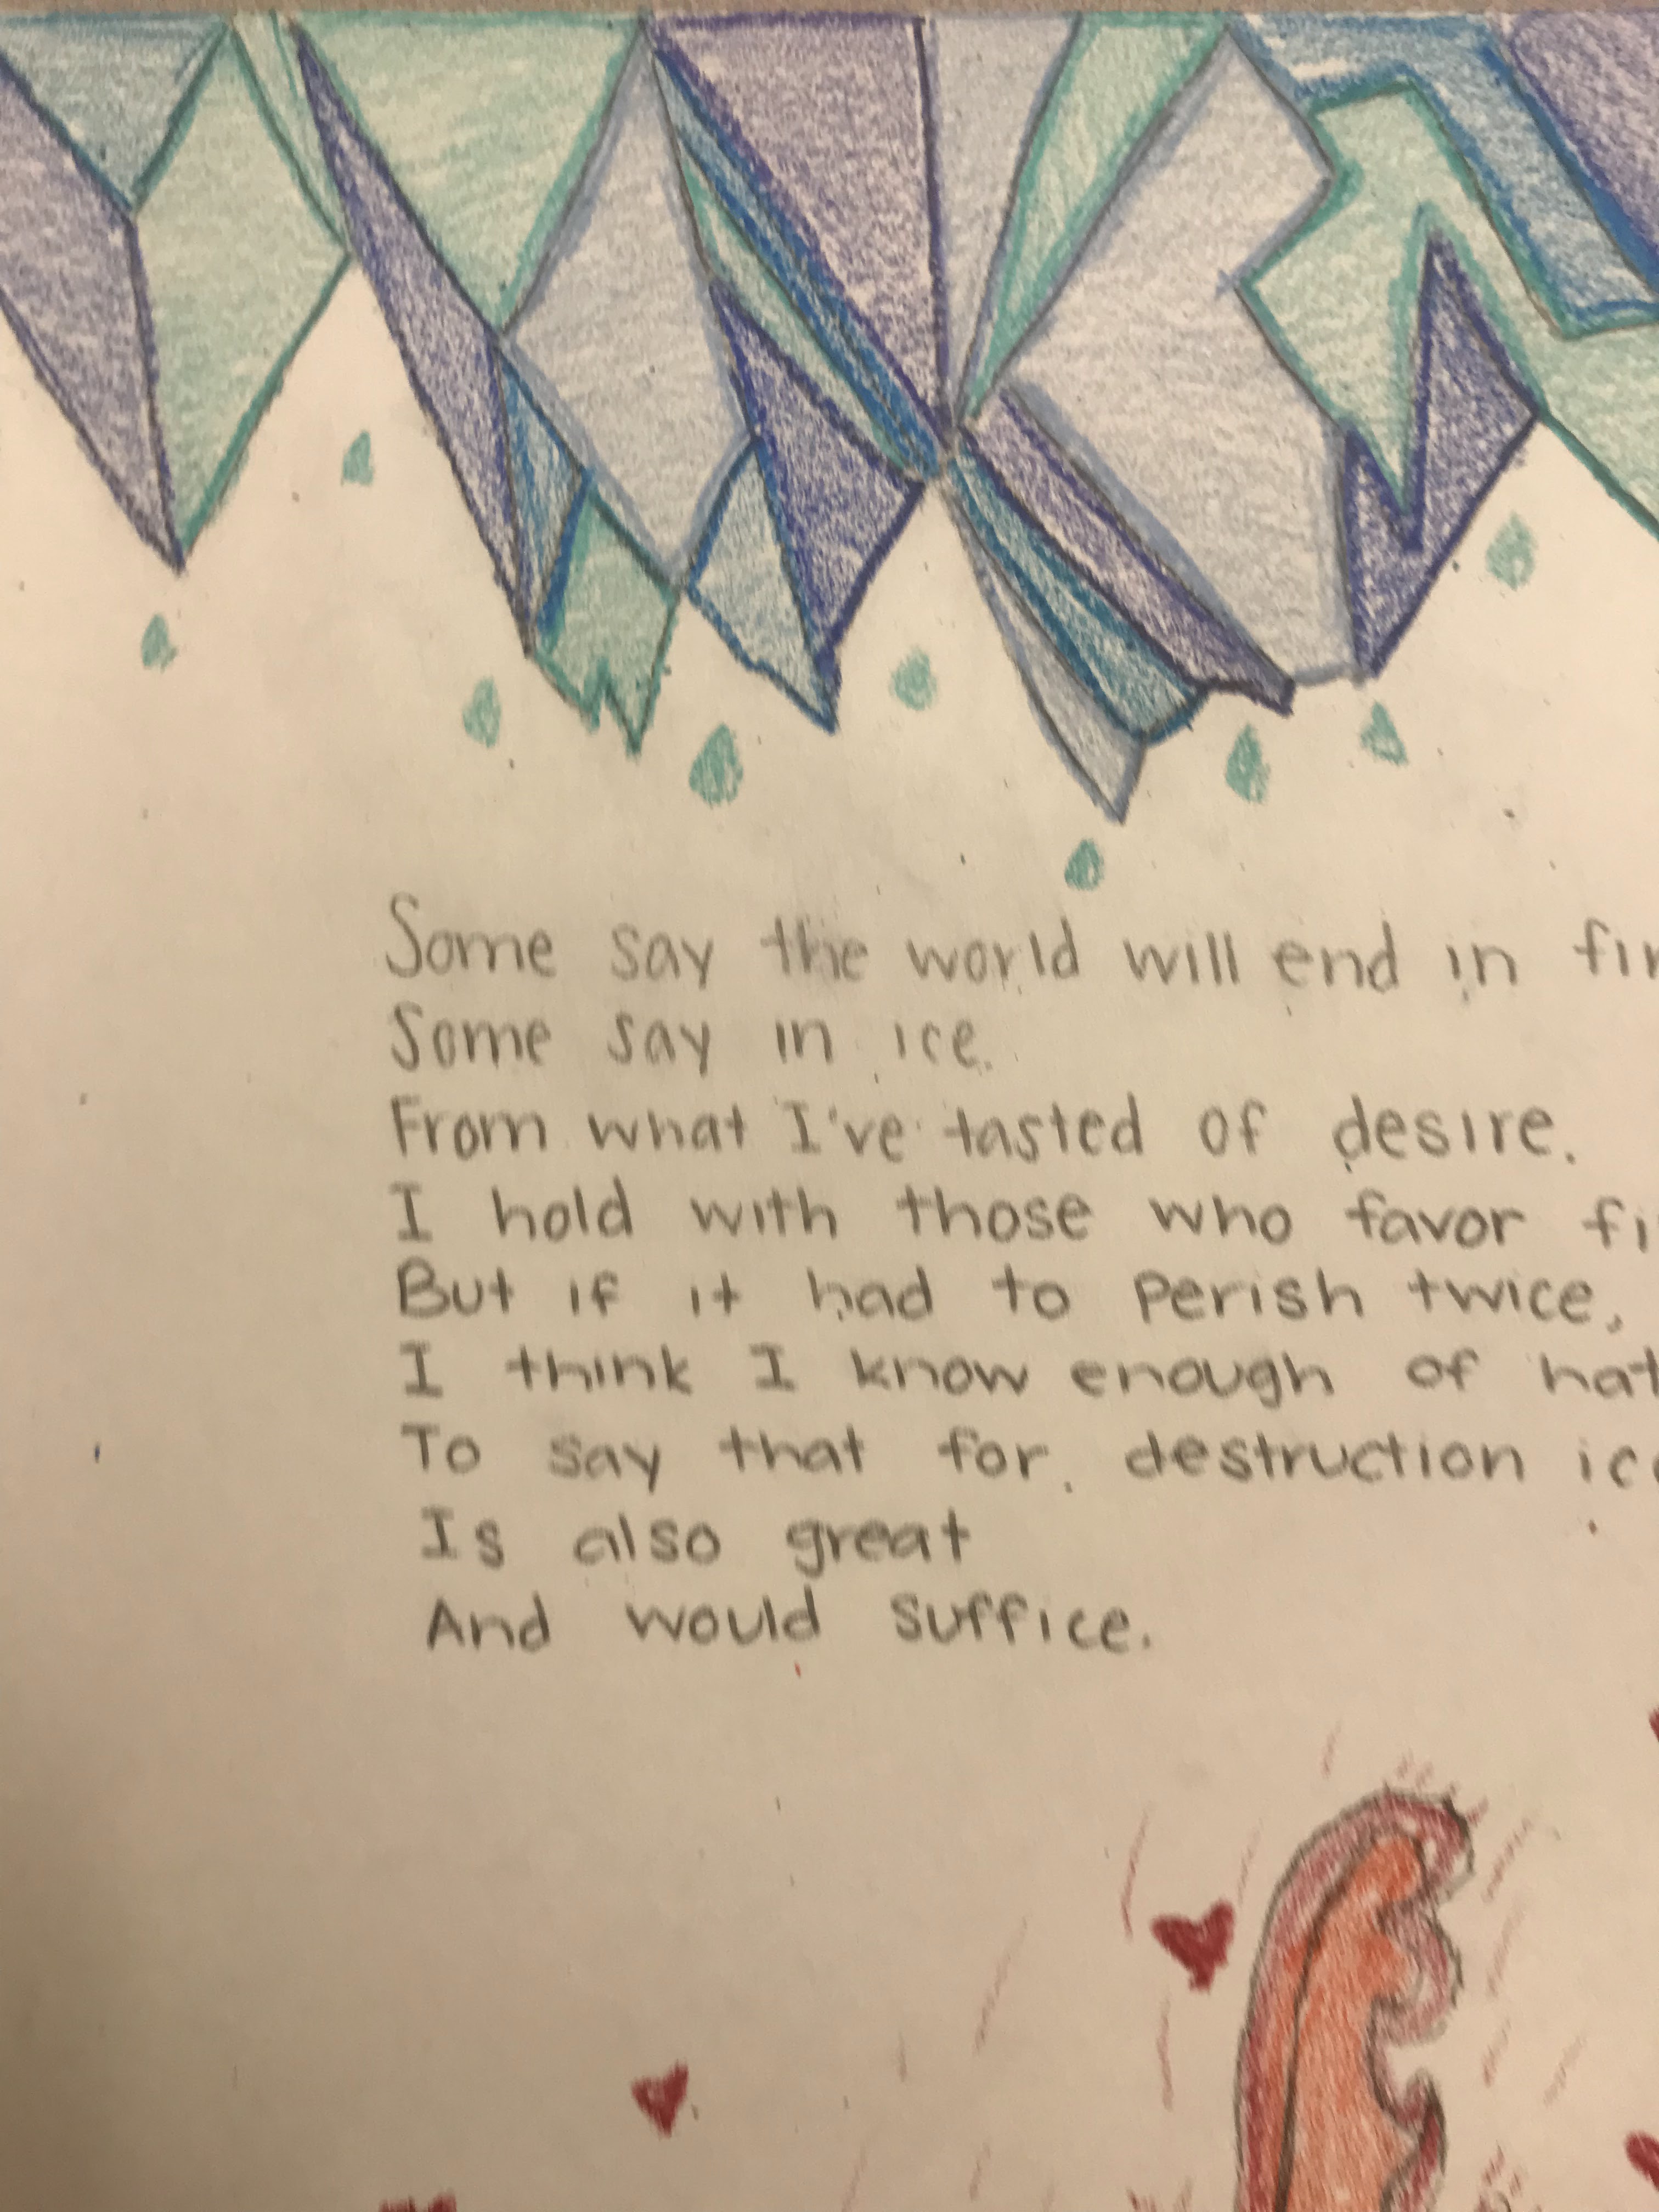 Some say the world will end in fir
Some say in ice.
From what I've tasted of desire.
I hold with those who favor fi
But if it had to perish twice,
I think I know enough of hat
To say that for destruction ice
Is also great
And would suffice.